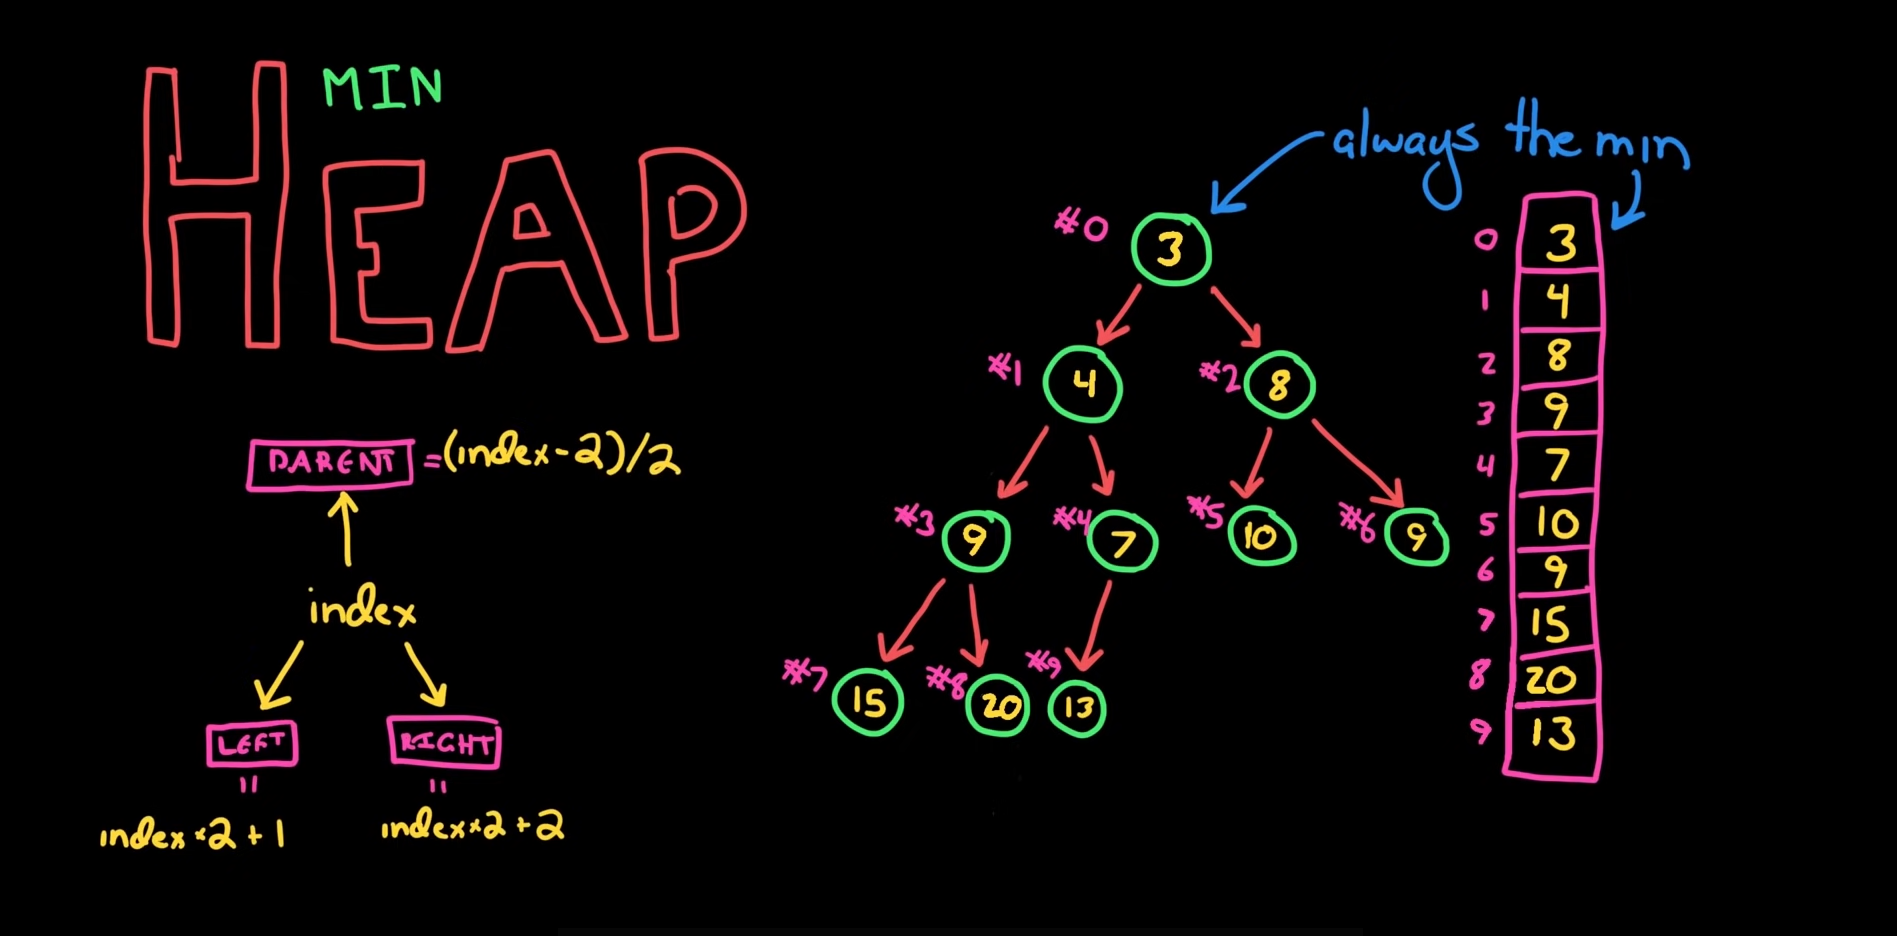 MIN
HEAP
PARENT = (index-2)/2
index
LEFT RIGHT
= =
index*2+1 index*2+2
always the min
#0 3
#1 4 #2 8
#3 9 #4 7 #5 10 #6 9
#7 15 #8 20 #9 13
0 3
1 4
2 8
3 9
4 7
5 10
6 9
7 15
8 20
9 13